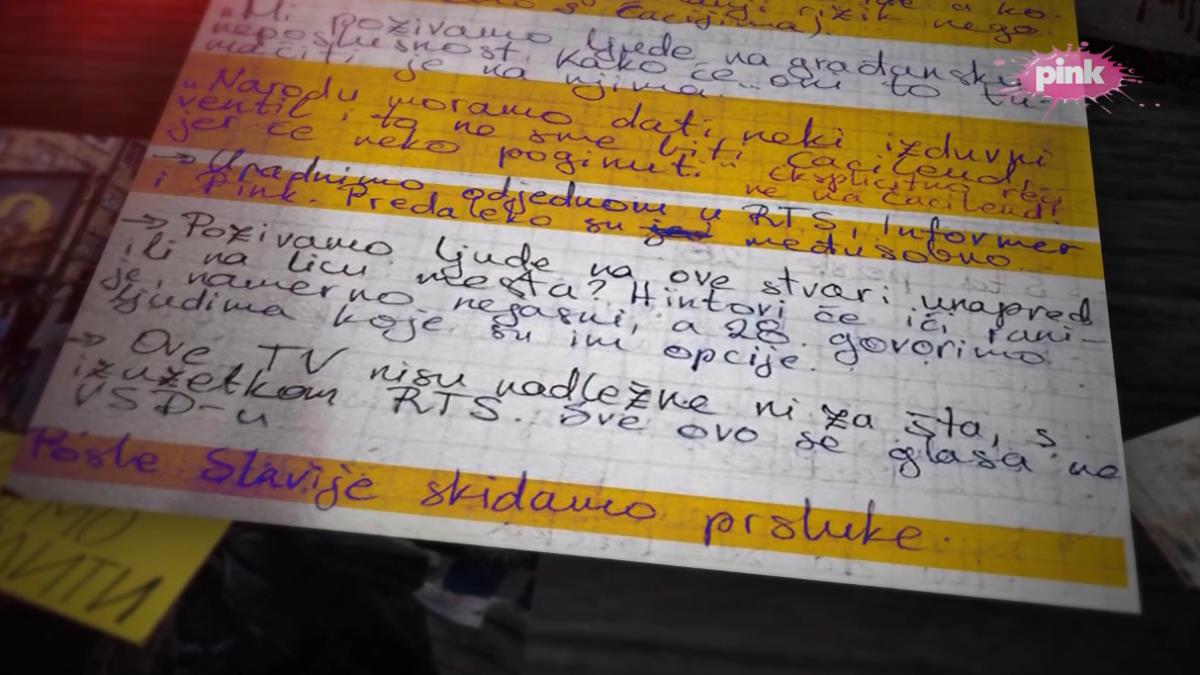 rizik nego
(sa ćacijima).
"Mi pozivamo ljude na građansku
neposlušnost. Kako će oni to tu-
mačiti, je na njima.
pink
"Narodu moramo dati neki izduvni
ventil, i to ne sme biti Ćacilend
jer će neko poginuti." Eksplicitno reći
ne na Ćacilendi
→ Uradnimo odjednom u RTS, Informer
i Pink. Predaleko su međusobno
→ Pozivamo ljude na ove stvari unapred
ili na licu mesta? Hintovi će ići rani-
je, namerno negasni, a 28. govorimo
ljudima koje su im opcije.
→ Ove TV nisu nadležne ni za šta, s
izuzetkom RTS. Sve ovo se glasa na
VSD-u
Posle Slavije skidamo prsluke.